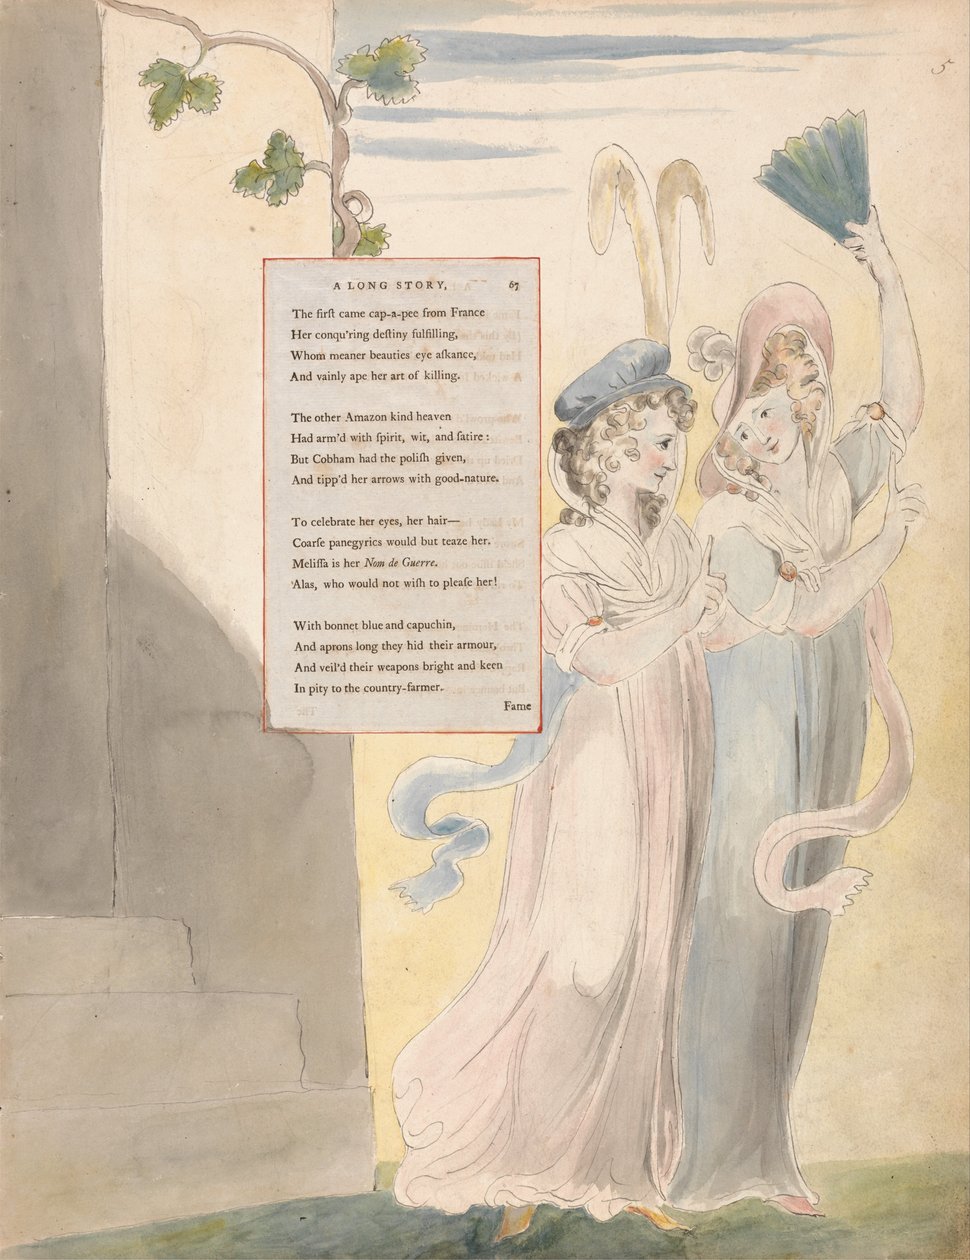 5
A LONG STORY, 67
The firſt came cap-a-pee from France
Her conqu'ring deſtiny fulfilling,
Whom meaner beauties eye aſkance,
And vainly ape her art of killing.
The other Amazon kind heaven
Had arm'd with ſpirit, wit, and ſatire:
But Cobham had the poliſh given,
And tipp'd her arrows with good-nature.
To celebrate her eyes, her hair—
Coarſe panegyrics would but teaze her.
Meliſſa is her Nom de Guerre.
Alas, who would not wiſh to pleaſe her!
With bonnet blue and capuchin,
And aprons long they hid their armour,
And veil'd their weapons bright and keen
In pity to the country-farmer.
Fame